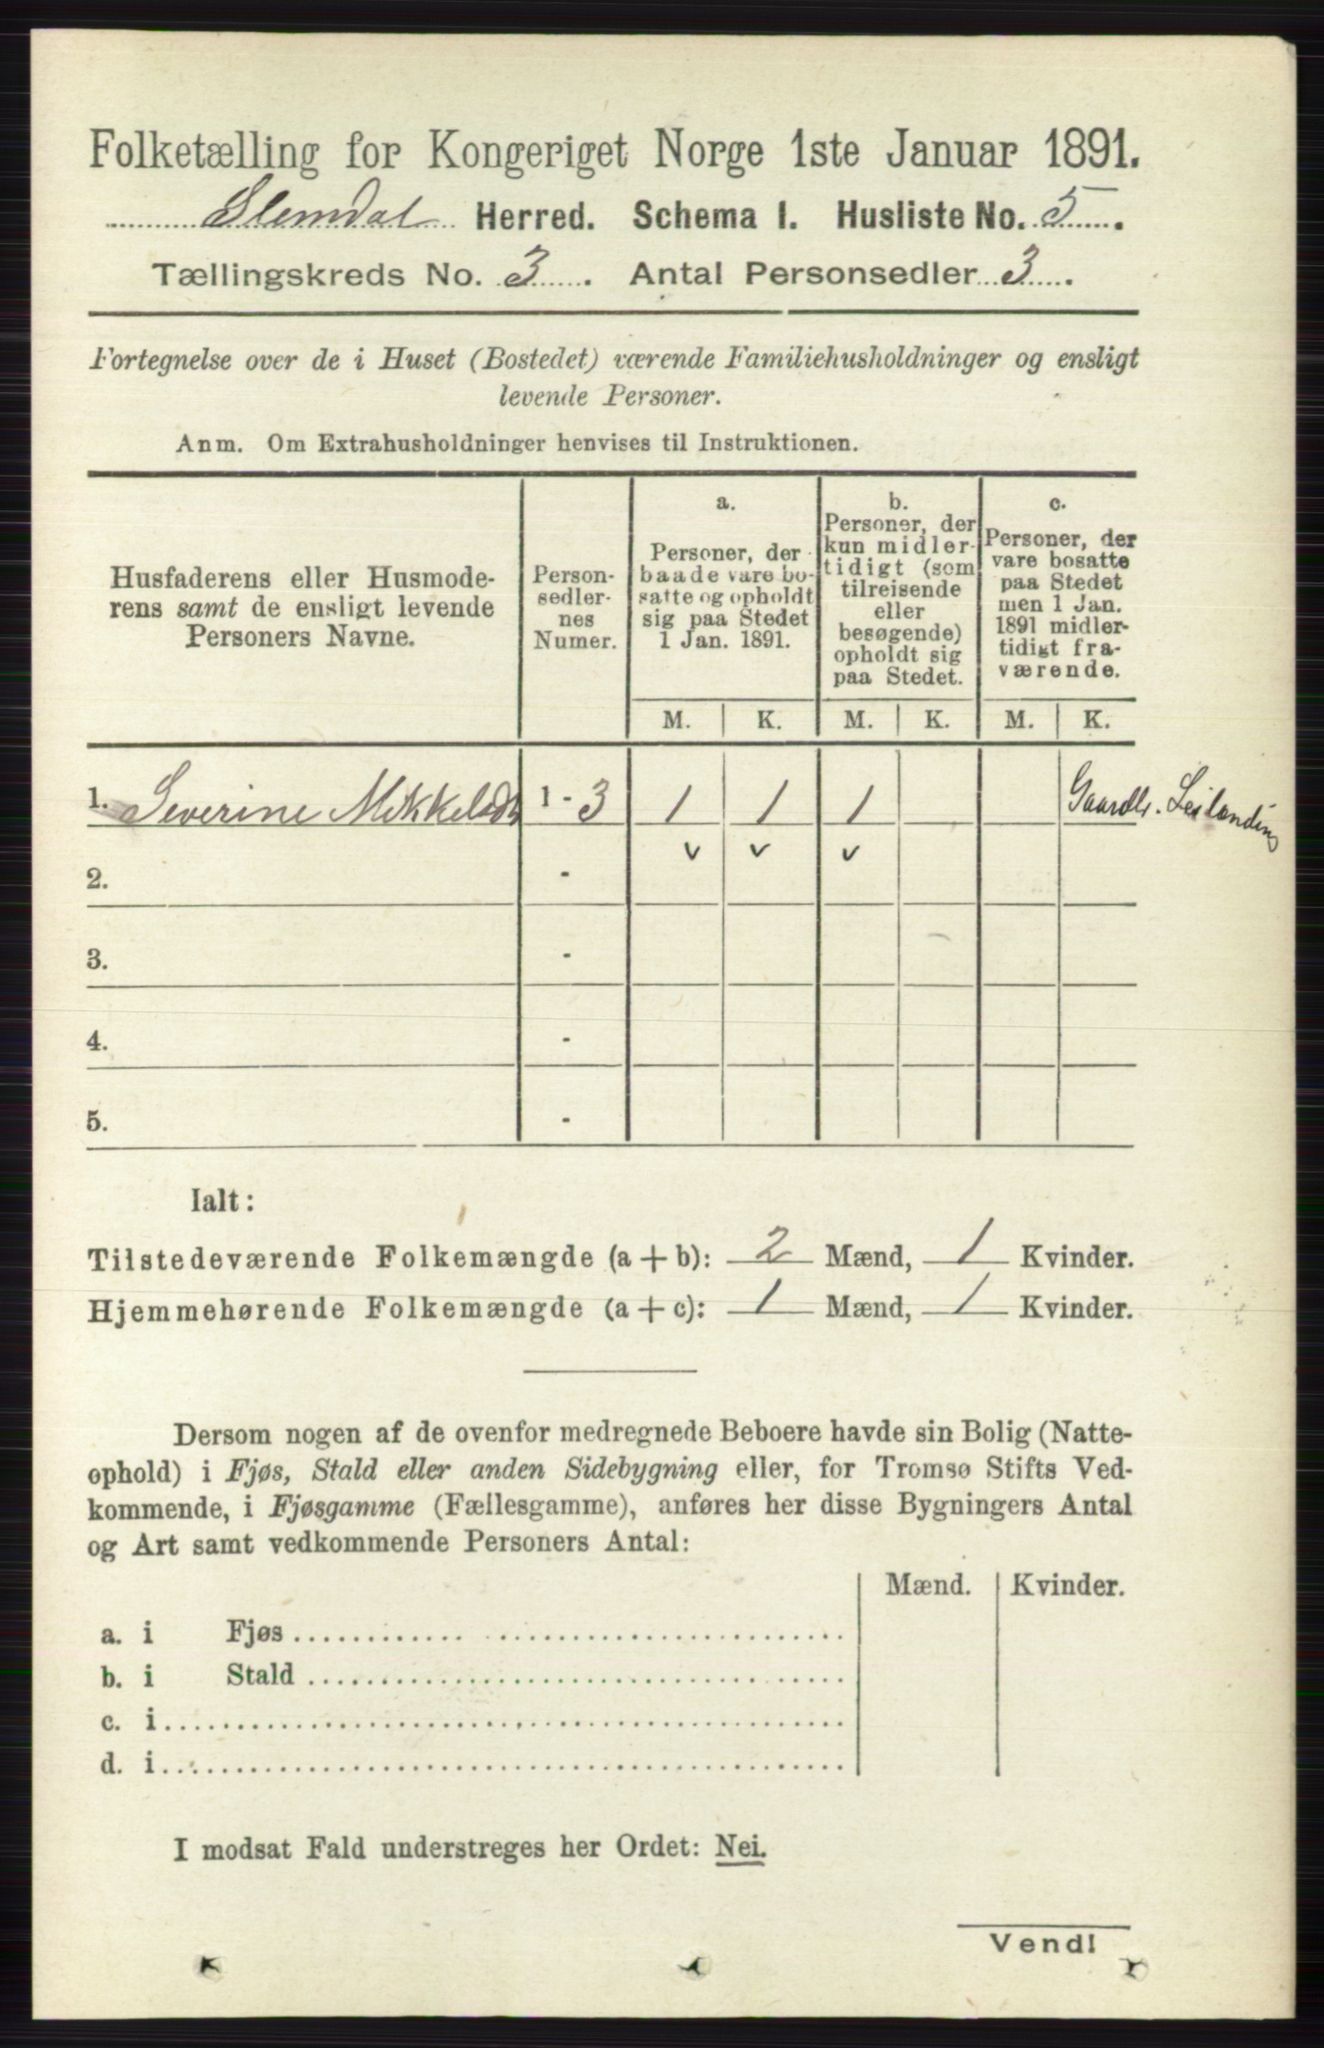 Folketælling for Kongeriget Norge 1ste Januar 1891.
Slemdal Herred. Schema I. Husliste No. 5.
Tællingskreds No. 3. Antal Personsedler 3.
Fortegnelse over de i Huset (Bostedet) værende Familiehusholdninger og ensligt
levende Personer.
Anm. Om Extrahusholdninger henvises til Instruktionen.
Husfaderens eller Husmode-
rens samt de ensligt levende
Personers Navne.
Person-
sedler-
nes
Numer.
a.
Personer, der
baade vare bo-
satte og opholdt
sig paa Stedet
1 Jan. 1891.
b.
Personer, der
kun midler-
tidigt (som
tilreisende
eller
besøgende)
opholdt sig
paa Stedet.
c.
Personer, der
vare bosatte
paa Stedet
men 1 Jan.
1891 midler-
tidigt fra-
værende.
M. K. M. K. M. K.
1. Severine Mikkelsdt 1 - 3 1 1 1 Gaardbr. Leilending
v v v
2. -
3. -
4. -
5. -
Ialt:
Tilstedeværende Folkemængde (a + b): 2 Mænd, 1 Kvinder.
Hjemmehørende Folkemængde (a + c): 1 Mænd, 1 Kvinder.
Dersom nogen af de ovenfor medregnede Beboere havde sin Bolig (Natte-
ophold) i Fjøs, Stald eller anden Sidebygning eller, for Tromsø Stifts Ved-
kommende, i Fjøsgamme (Fællesgamme), anføres her disse Bygningers Antal
og Art samt vedkommende Personers Antal:
Mænd. Kvinder.
a. i Fjøs
b. i Stald
c. i
d. i
I modsat Fald understreges her Ordet: Nei.
Vend!